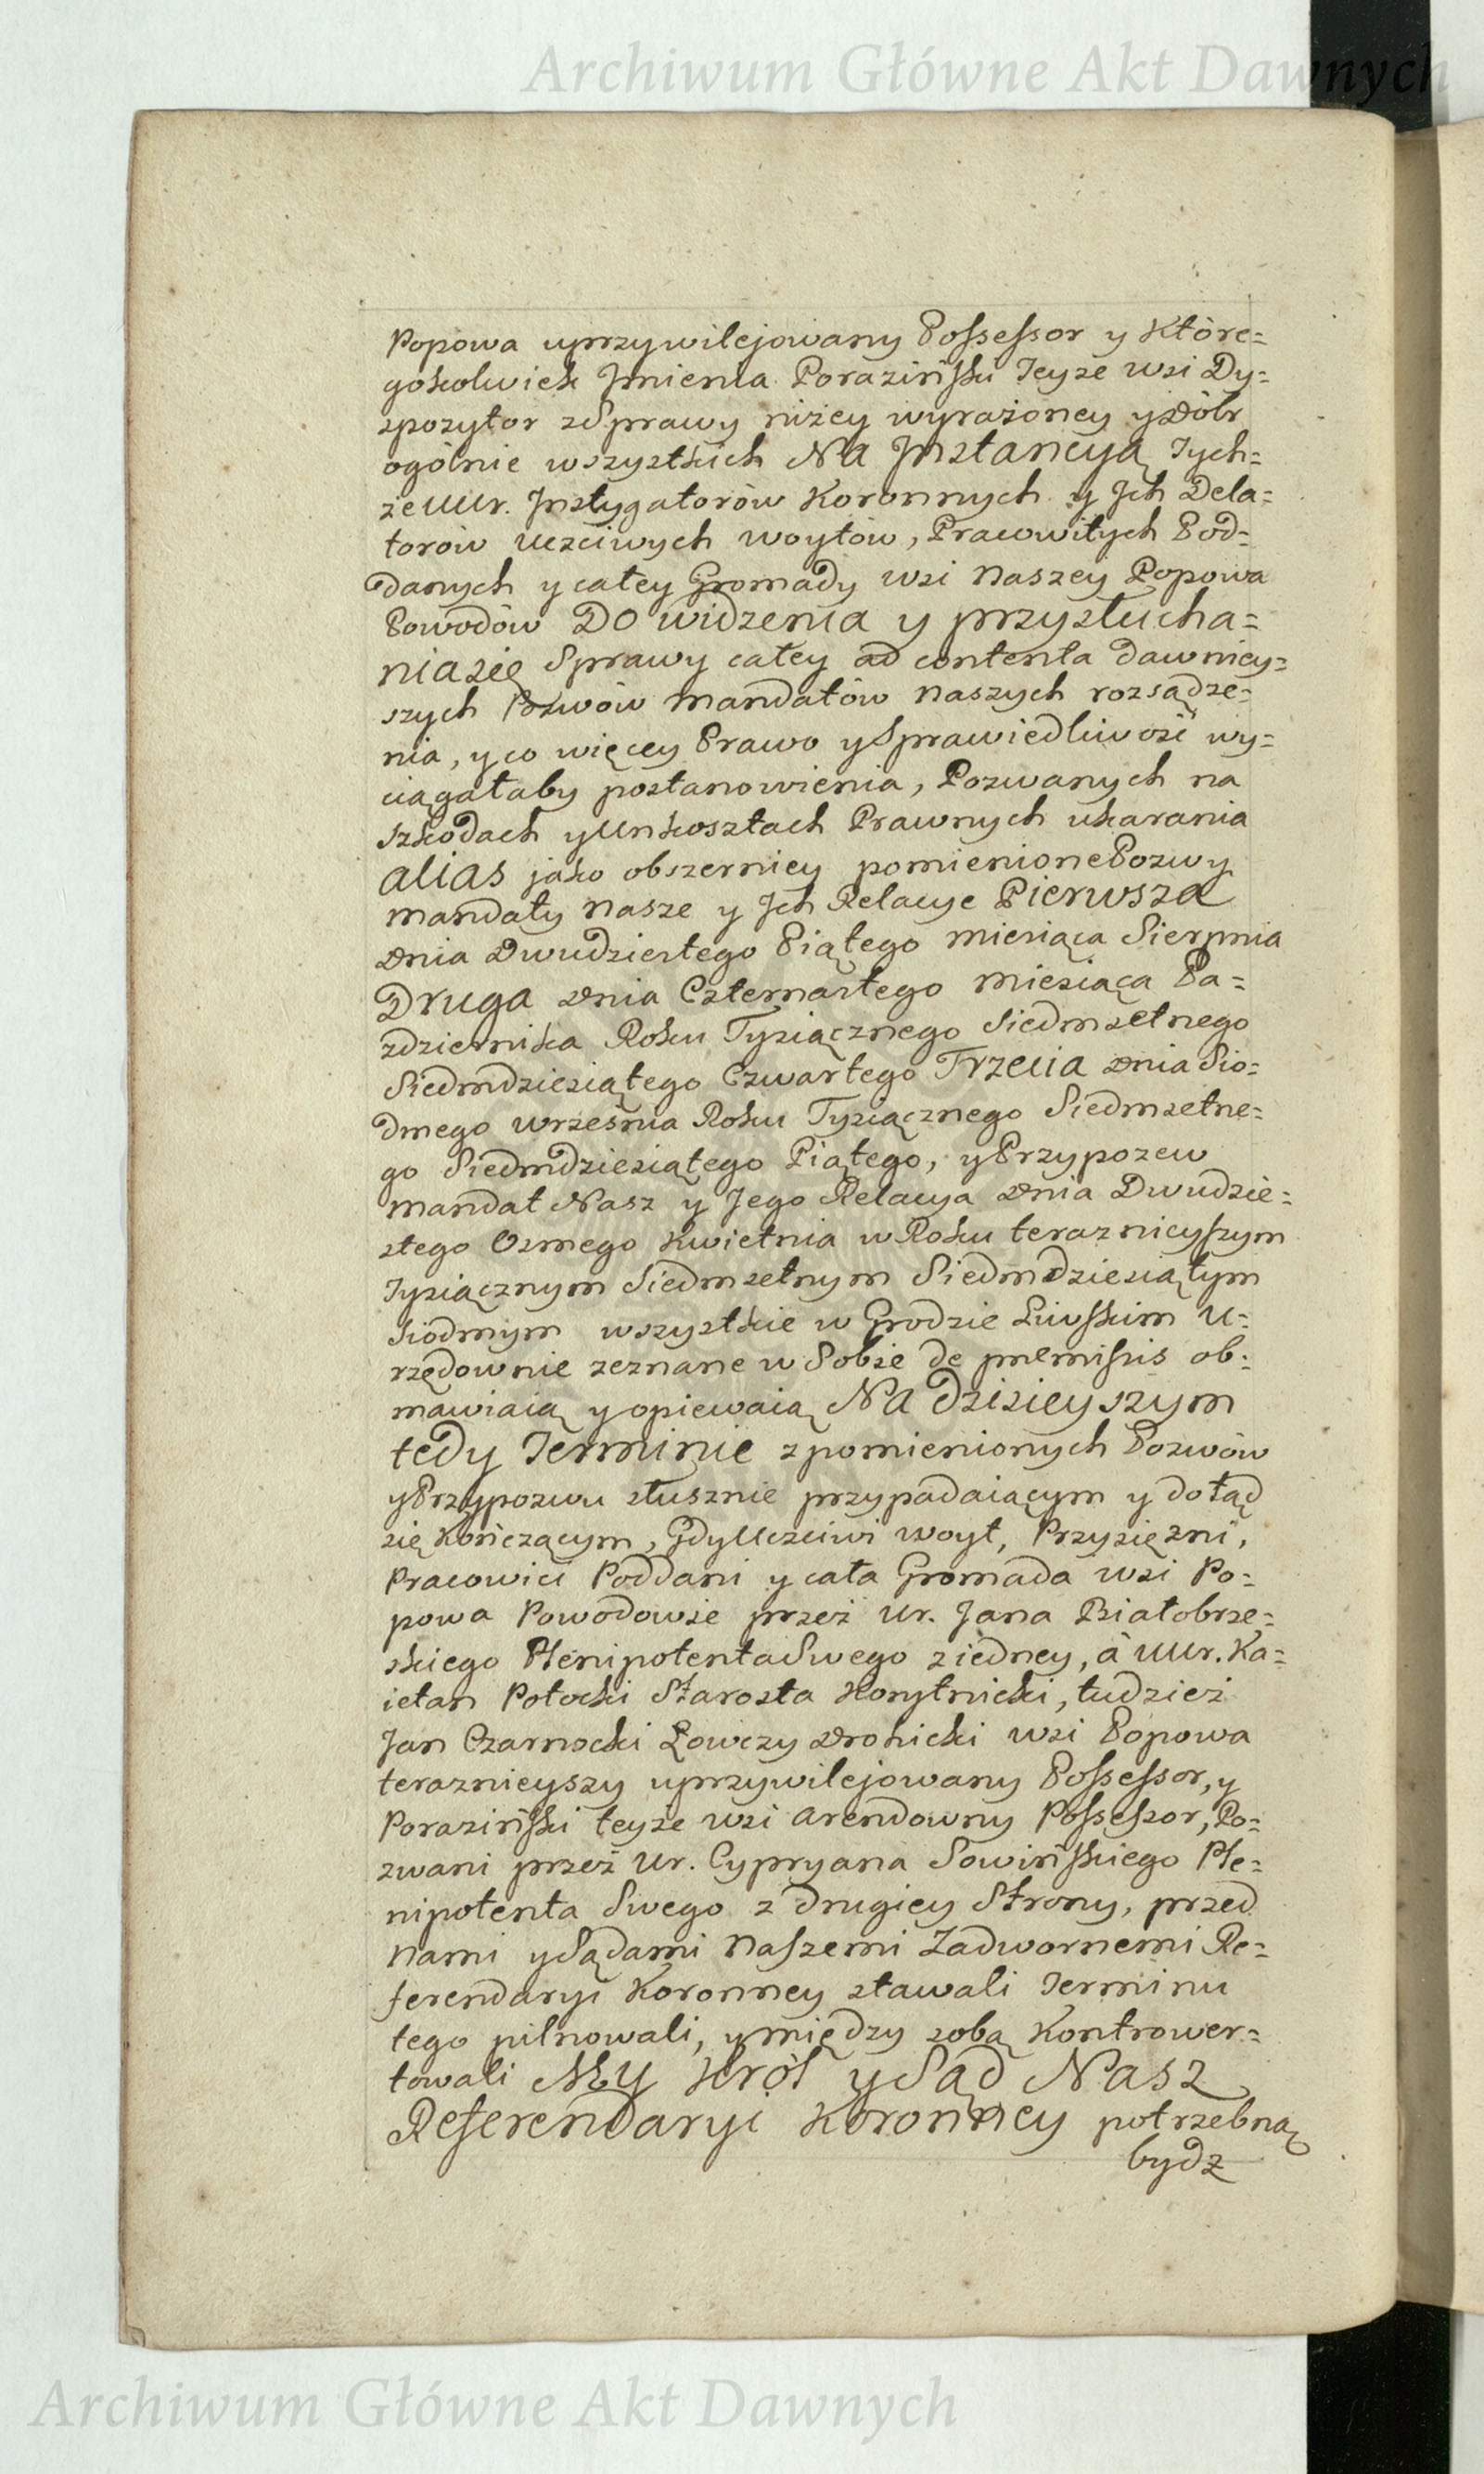 Archiwum Główne Akt Dawnych
Popowa uprzywilejowany Possessor y Które=
gokolwiek Jmienia Poraziński Teyże wsi Dy=
spozytor z Sprawy niżey wyrażoney y Dóbr
ogólnie wszystkich Na Jnstancyą Tych=
że UUr. Jnstygatorów Koronnych y Jch Dela=
torów Uczciwych Woytów, Pracowitych Pod=
danych y całey Gromady wsi Naszey Popowa
Powodów Do widzenia y przysłucha=
nia się Sprawy całey ad contenta dawniey=
szych Pozwów Mandatów Naszych rozsądze=
nia, y co więcey Prawo y Sprawiedliwość wy=
ciągałaby postanowienia, Pozwanych na
szkodach y Unkosztach Prawnych ukarania
alias jako obszerniey pomienione Pozwy
Mandaty Nasze y Jch Relacye Pierwsza
Dnia Dwudziestego Piątego Miesiąca Sierpnia
Druga Dnia Czternastego Miesiąca Pa=
zdziernika Roku Tysiącznego Siedmsetnego
Siedmdziesiątego Czwartego Trzecia Dnia Sio=
dmego Września Roku Tysiącznego Siedmsetne=
go Siedmdziesiątego Piątego, y Przypozew
Mandat Nasz y Jego Relacya Dnia Dwudzie=
stego Osmego Kwietnia w Roku teraznieyszym
Tysiącznym Siedmsetnym Siedmdziesiątym
Siodmym wszystkie w Grodzie Liwskim U=
rzędownie zeznane w Sobie de præmissis ob=
mawiaią y opiewaią Na dzisieyszym
tedy Terminie z pomienionych Pozwów
y Przypozwu słusznie przypadaiącym y dotąd
się Kończącym, Gdy Uczciwi Woyt, Przysiężni,
Pracowici Poddani y cała Gromada wsi Po=
powa Powodowie przez Ur. Jana Białobrze=
skiego Plenipotenta Swego z iedney, à UUr. Ka=
ietan Potocki Starosta Korytnicki, tudzież
Jan Czarnocki Łowczy Drohicki wsi Popowa
teraznieyszy uprzywilejowany Possessor, y
Poraziński teyże wsi arendowny Possessor, Po=
zwani przez Ur. Cypryana Sowińskiego Ple=
nipotenta Swego z drugiey Strony, przed
Nami y Sądami Naszemi Zadwornemi Re=
ferendaryi Koronney stawali Terminu
tego pilnowali, y między sobą Kontrower=
towali My Król y Sąd Nasz
Referendaryi Koronney potrzebną
bydz
Archiwum Główne Akt Dawnych